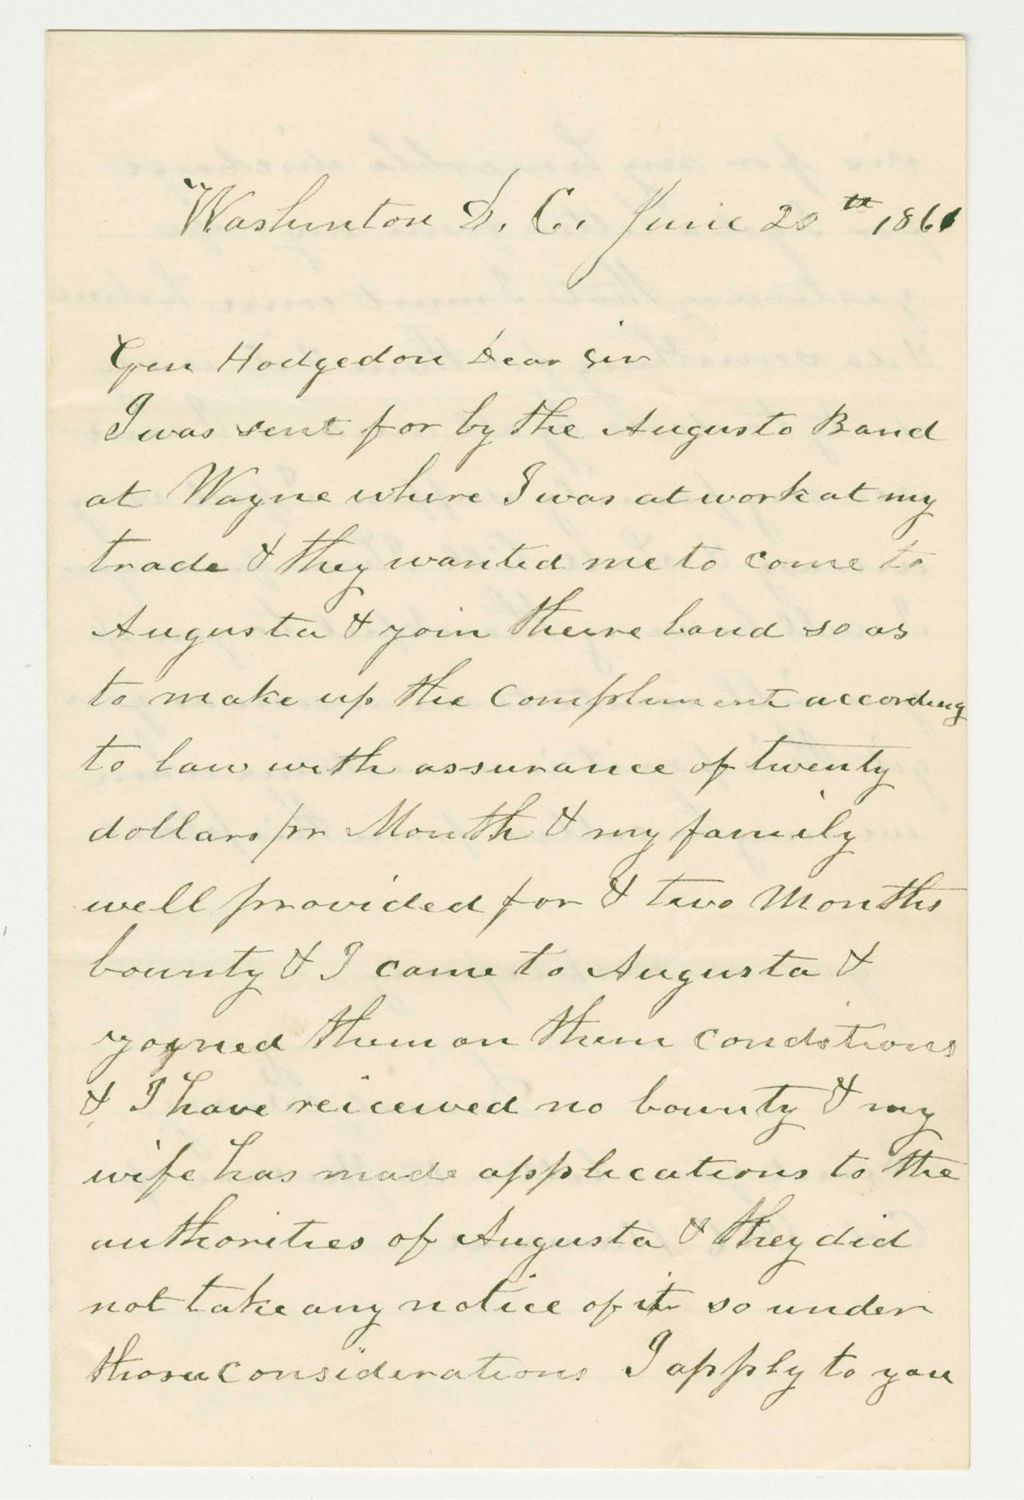 Washinton D. C. June 20th, 1861
Gen Hodgedon Dear Sir
I was sent for by the Augusta Band
at Wayne where I was at work at my
trade & they wanted me to come to
Augusta & join theire band so as
to make up the Compliment according
to law with assurance of twenty
dollars pr Month & my family
well provided for & two Months
bounty & I came to Augusta &
joyned them on them conditions
& I have reiceived no bounty & my
wife has made applications to the
authorities of Augusta & they did
not take any notice of it so under
those considerations I apply to you